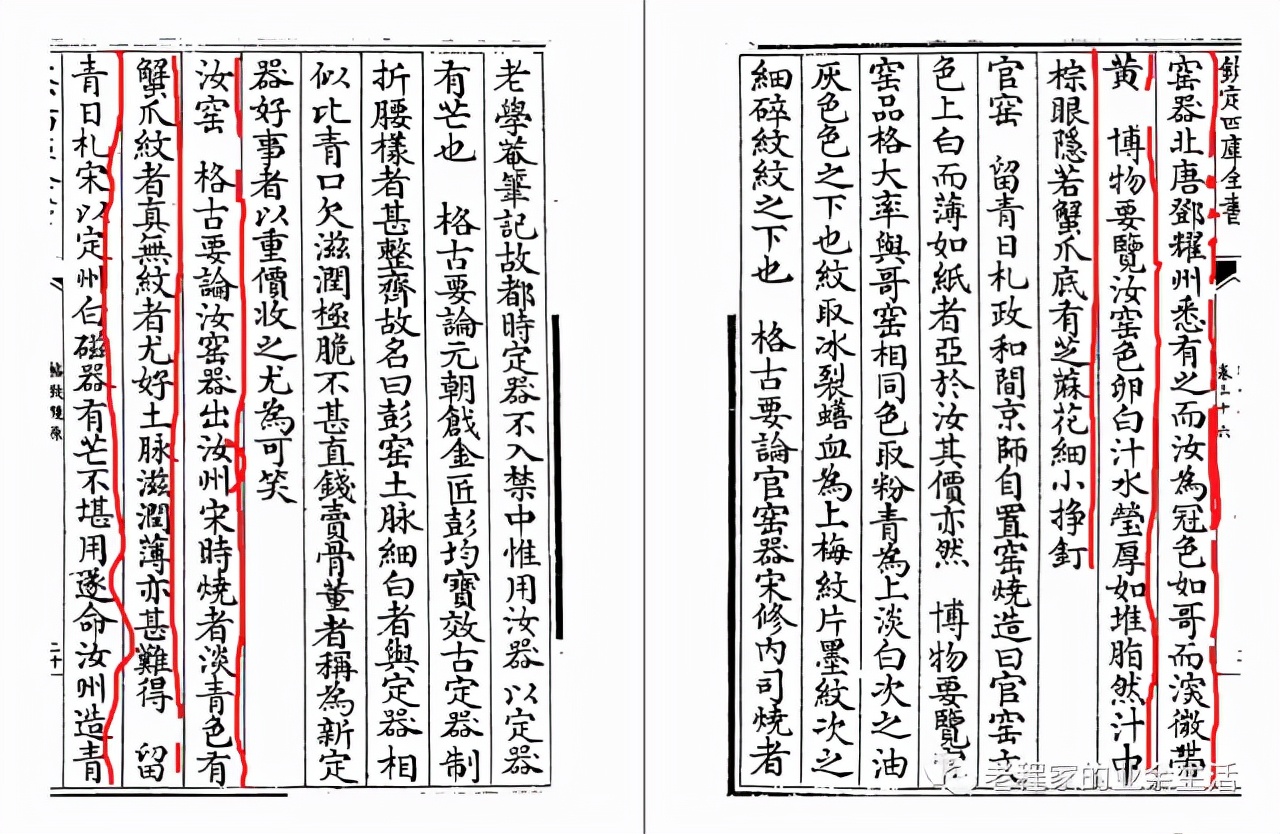 老學菴筆記故都時定器不入禁中惟用汝器以定器
有芒也　格古要論元朝戧金匠彭均寶效古定器制
折腰樣者甚整齊故名曰彭窑土脉細白者與定器相
似比青口欠滋潤極脆不甚直錢賣骨董者稱為新定
器好事者以重價收之尤為可笑
汝窑　格古要論汝窑器出汝州宋時燒者淡青色有
蟹爪紋者真無紋者尤好土脉滋潤薄亦甚難得　留
青日札宋以定州白磁器有芒不堪用遂命汝州造青
格致鏡原
欽定四庫全書
卷三十六
窑器北唐鄧耀州悉有之而汝為冠色如哥而深微帶
黄　博物要覽汝窑色卵白汁水瑩厚如堆脂然汁中
棕眼隱若蟹爪底有芝蔴花細小掙釘
官窑　留青日札政和間京師自置窑燒造曰官窑土
色上白而薄如紙者亞於汝其價亦然　博物要覽
窑品格大率與哥窑相同色取粉青為上淡白次之油
灰色色之下也紋取冰裂蟮血為上梅紋片墨紋次之
細碎紋紋之下也　格古要論官窑器宋修内司燒者
老程家的业余生活